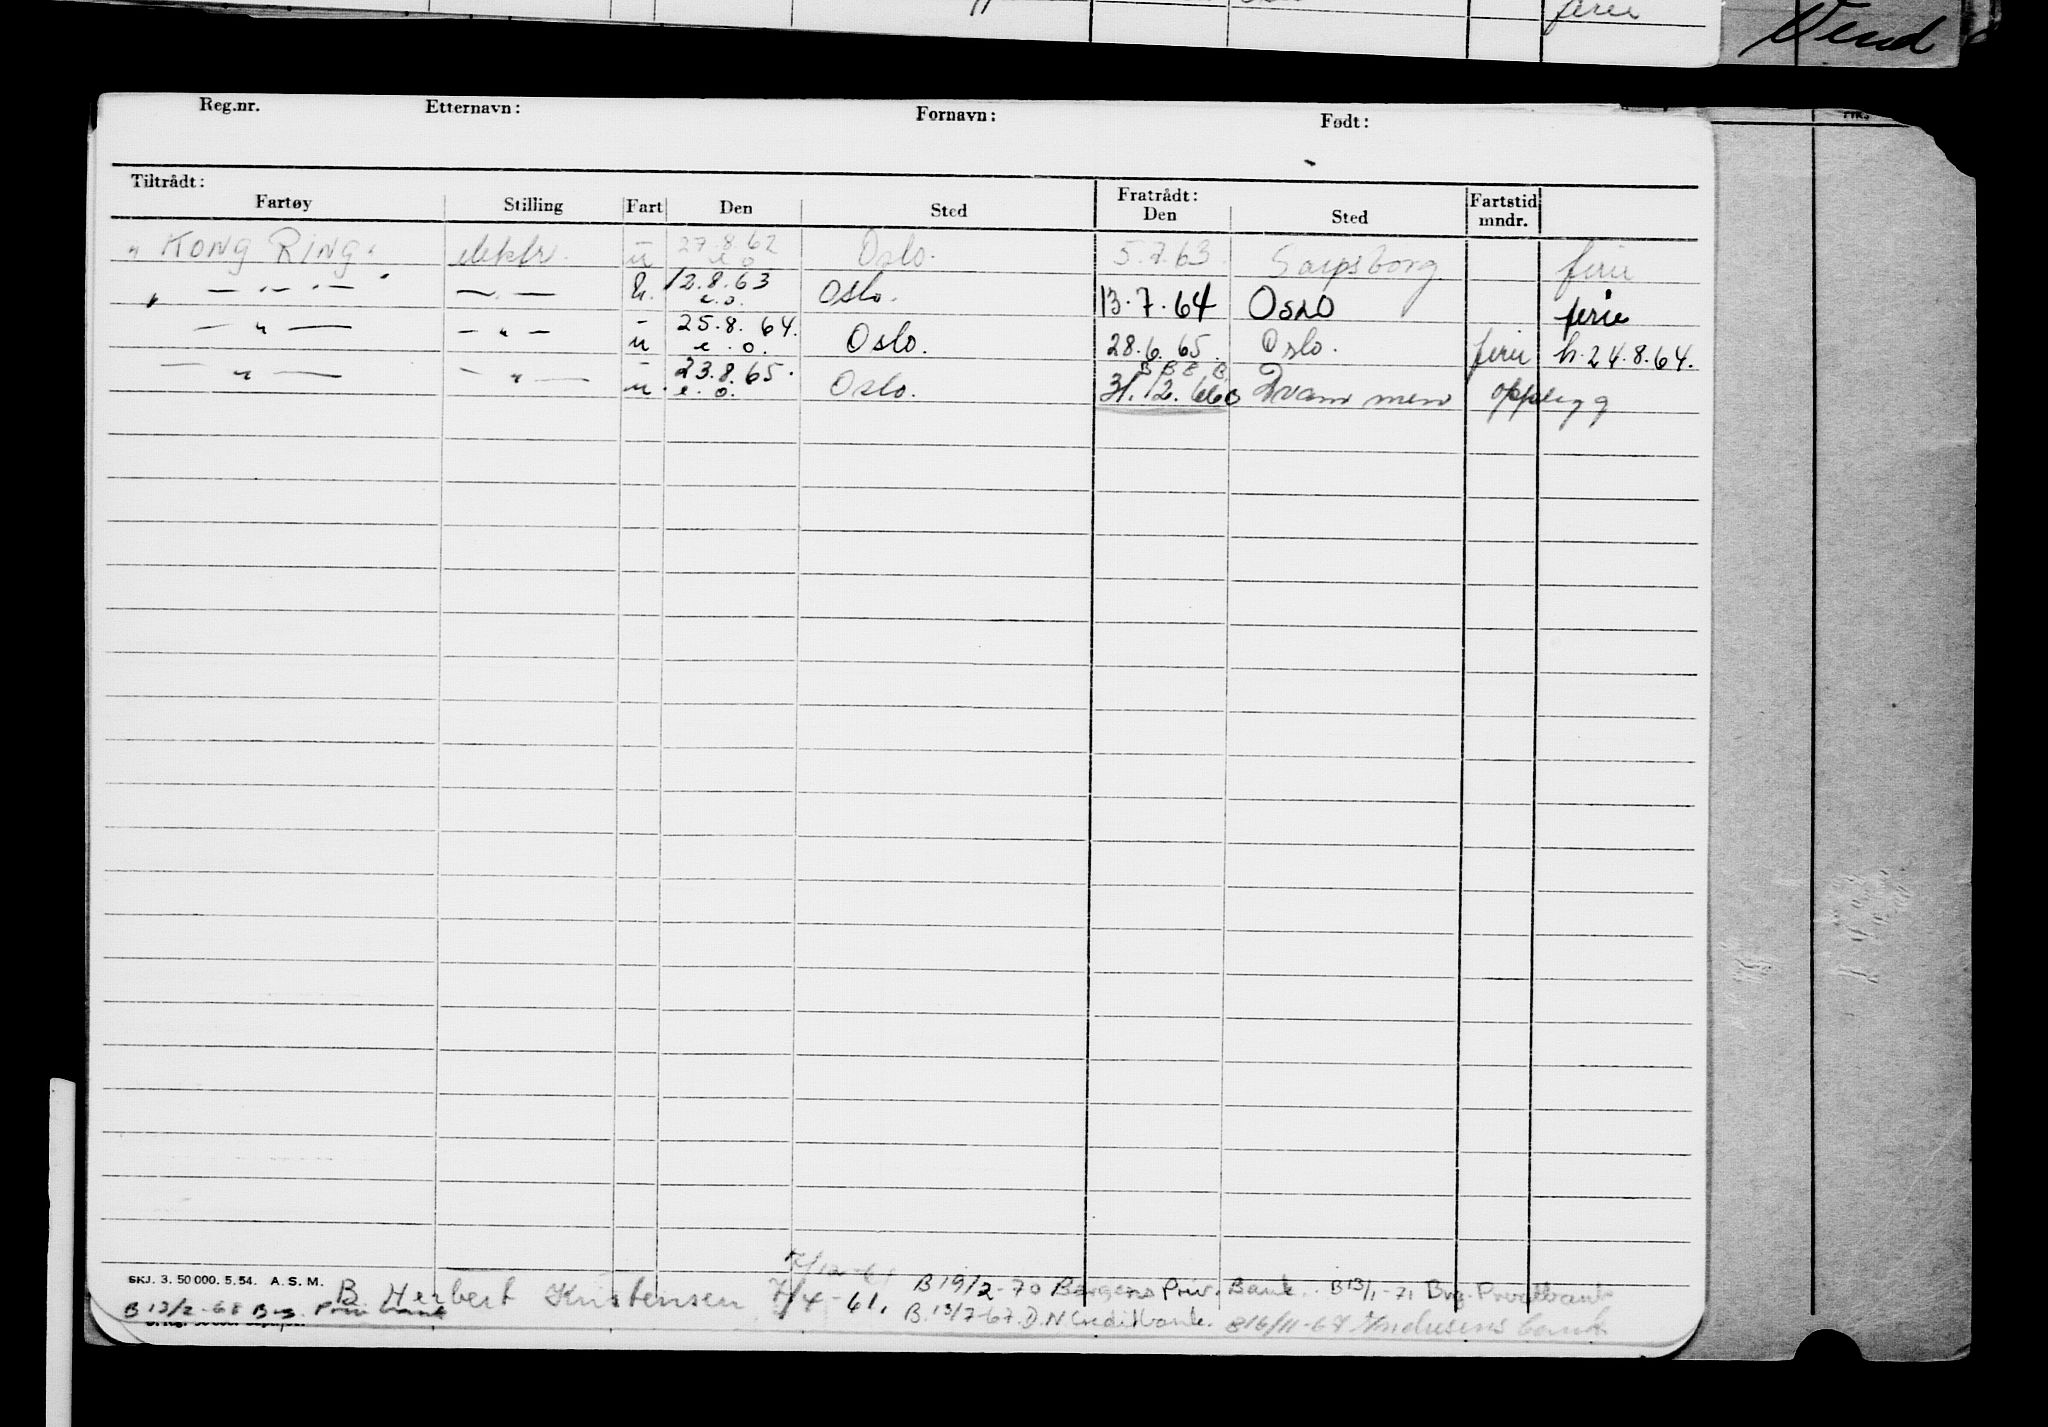 ferie
Vend
Reg.nr. Etternavn: Fornavn: Født:
Tiltrådt: Fratrådt: Fartstid
Fartøy Stilling Fart Den Sted Den Sted mndr.
" KONG RING. elektr. u 27.8.62 e.o Oslo. 5.7.63. Sarpsborg ferie
" — " — — " — u. 12.8.63 e.o. Oslo. 13.7.64 OSLO ferie
— " — — " — u 25.8.64. e.o. Oslo. 28.6.65. Oslo. ferie h.24.8.64.
— " — — " — u. 23.8.65. e.o. Oslo. 31.12.66 Drammen opplegg
SKJ. 3. 50 000. 5. 54. A. S. M.
7/12-61
B. Herbert Kristensen 7/4-61. B 19/2-70 Bergens Priv. Bank. B 13/1-71 Brg. Privatbank
B 13/2-68 B-s. Priv bank B. 13/7-67. D.N Creditbank. B 16/11-68 Andresens bank